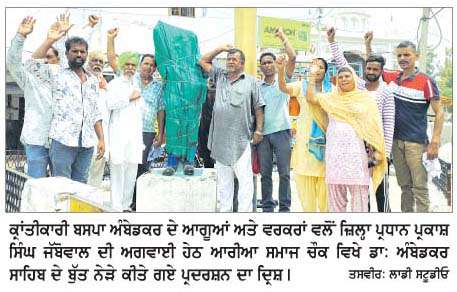 ਕ੍ਰਾਂਤੀਕਾਰੀ ਬਸਪਾ ਅੰਬੇਡਕਰ ਦੇ ਆਗੂਆਂ ਅਤੇ ਵਰਕਰਾਂ ਵਲੋਂ ਜ਼ਿਲ੍ਹਾ ਪ੍ਰਧਾਨ ਪ੍ਰਕਾਸ਼
ਸਿੰਘ ਜੱਬੋਵਾਲ ਦੀ ਅਗਵਾਈ ਹੇਠ ਆਰੀਆ ਸਮਾਜ ਚੌਕ ਵਿਖੇ ਡਾ: ਅੰਬੇਡਕਰ
ਸਾਹਿਬ ਦੇ ਬੁੱਤ ਨੇੜੇ ਕੀਤੇ ਗਏ ਪ੍ਰਦਰਸ਼ਨ ਦਾ ਦ੍ਰਿਸ਼।
ਤਸਵੀਰ: ਲਾਡੀ ਸਟੂਡੀਓ